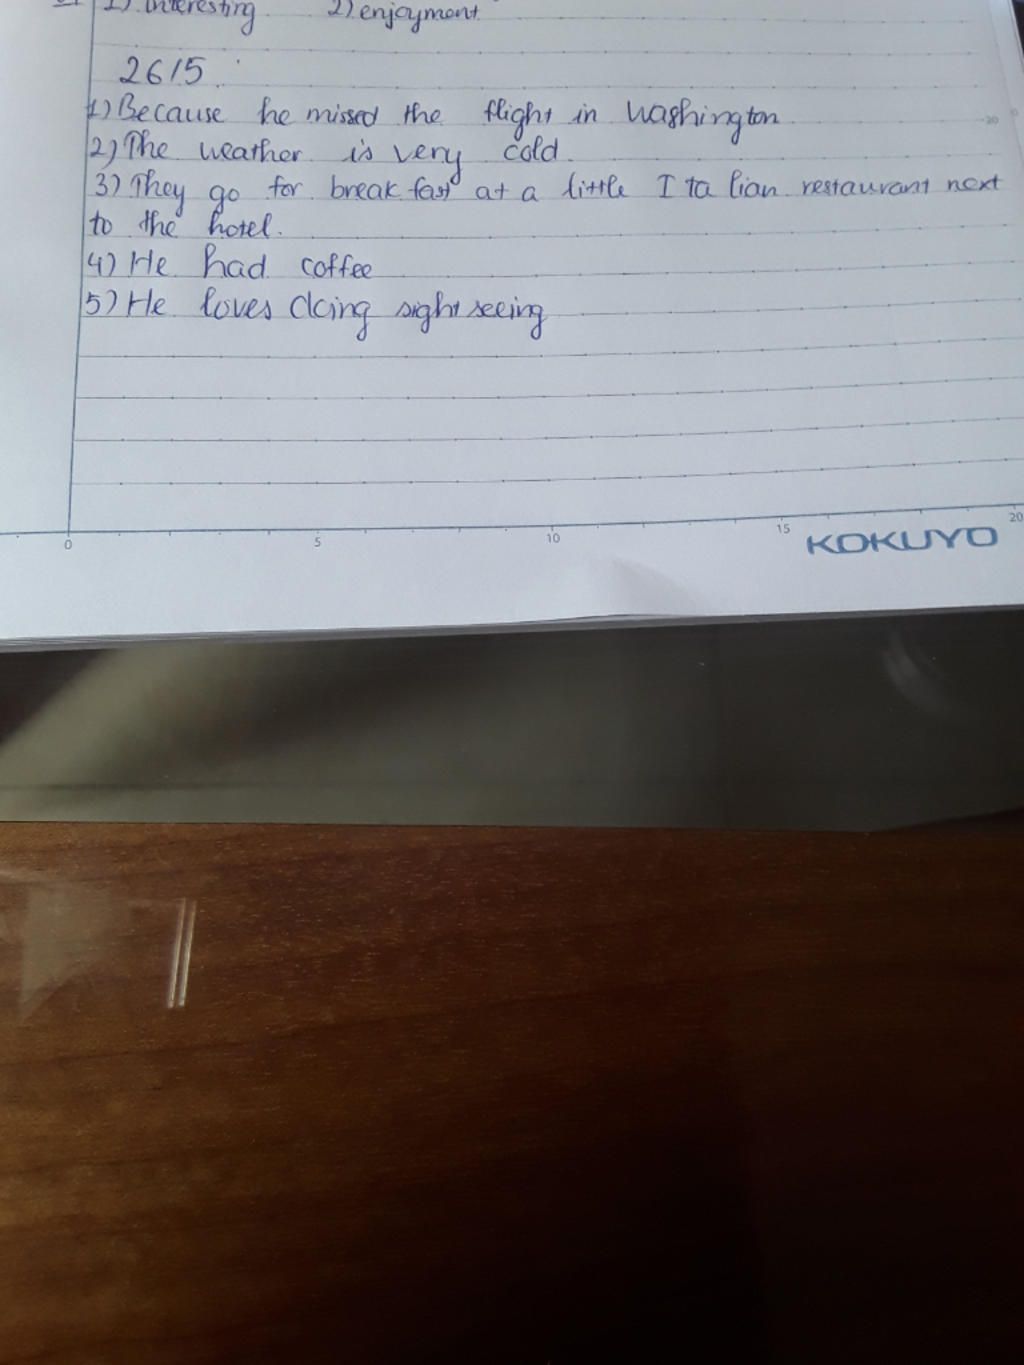 1) interesting 2) enjoyment
2615
1) Because he missed the flight in Washington
2) The weather is very cold.
3) They go for break fast at a little I ta lian restaurant next
to the hotel.
4) He had coffee
5) He loves doing sight seeing
20
0 5 10 15 20
KOKUYO